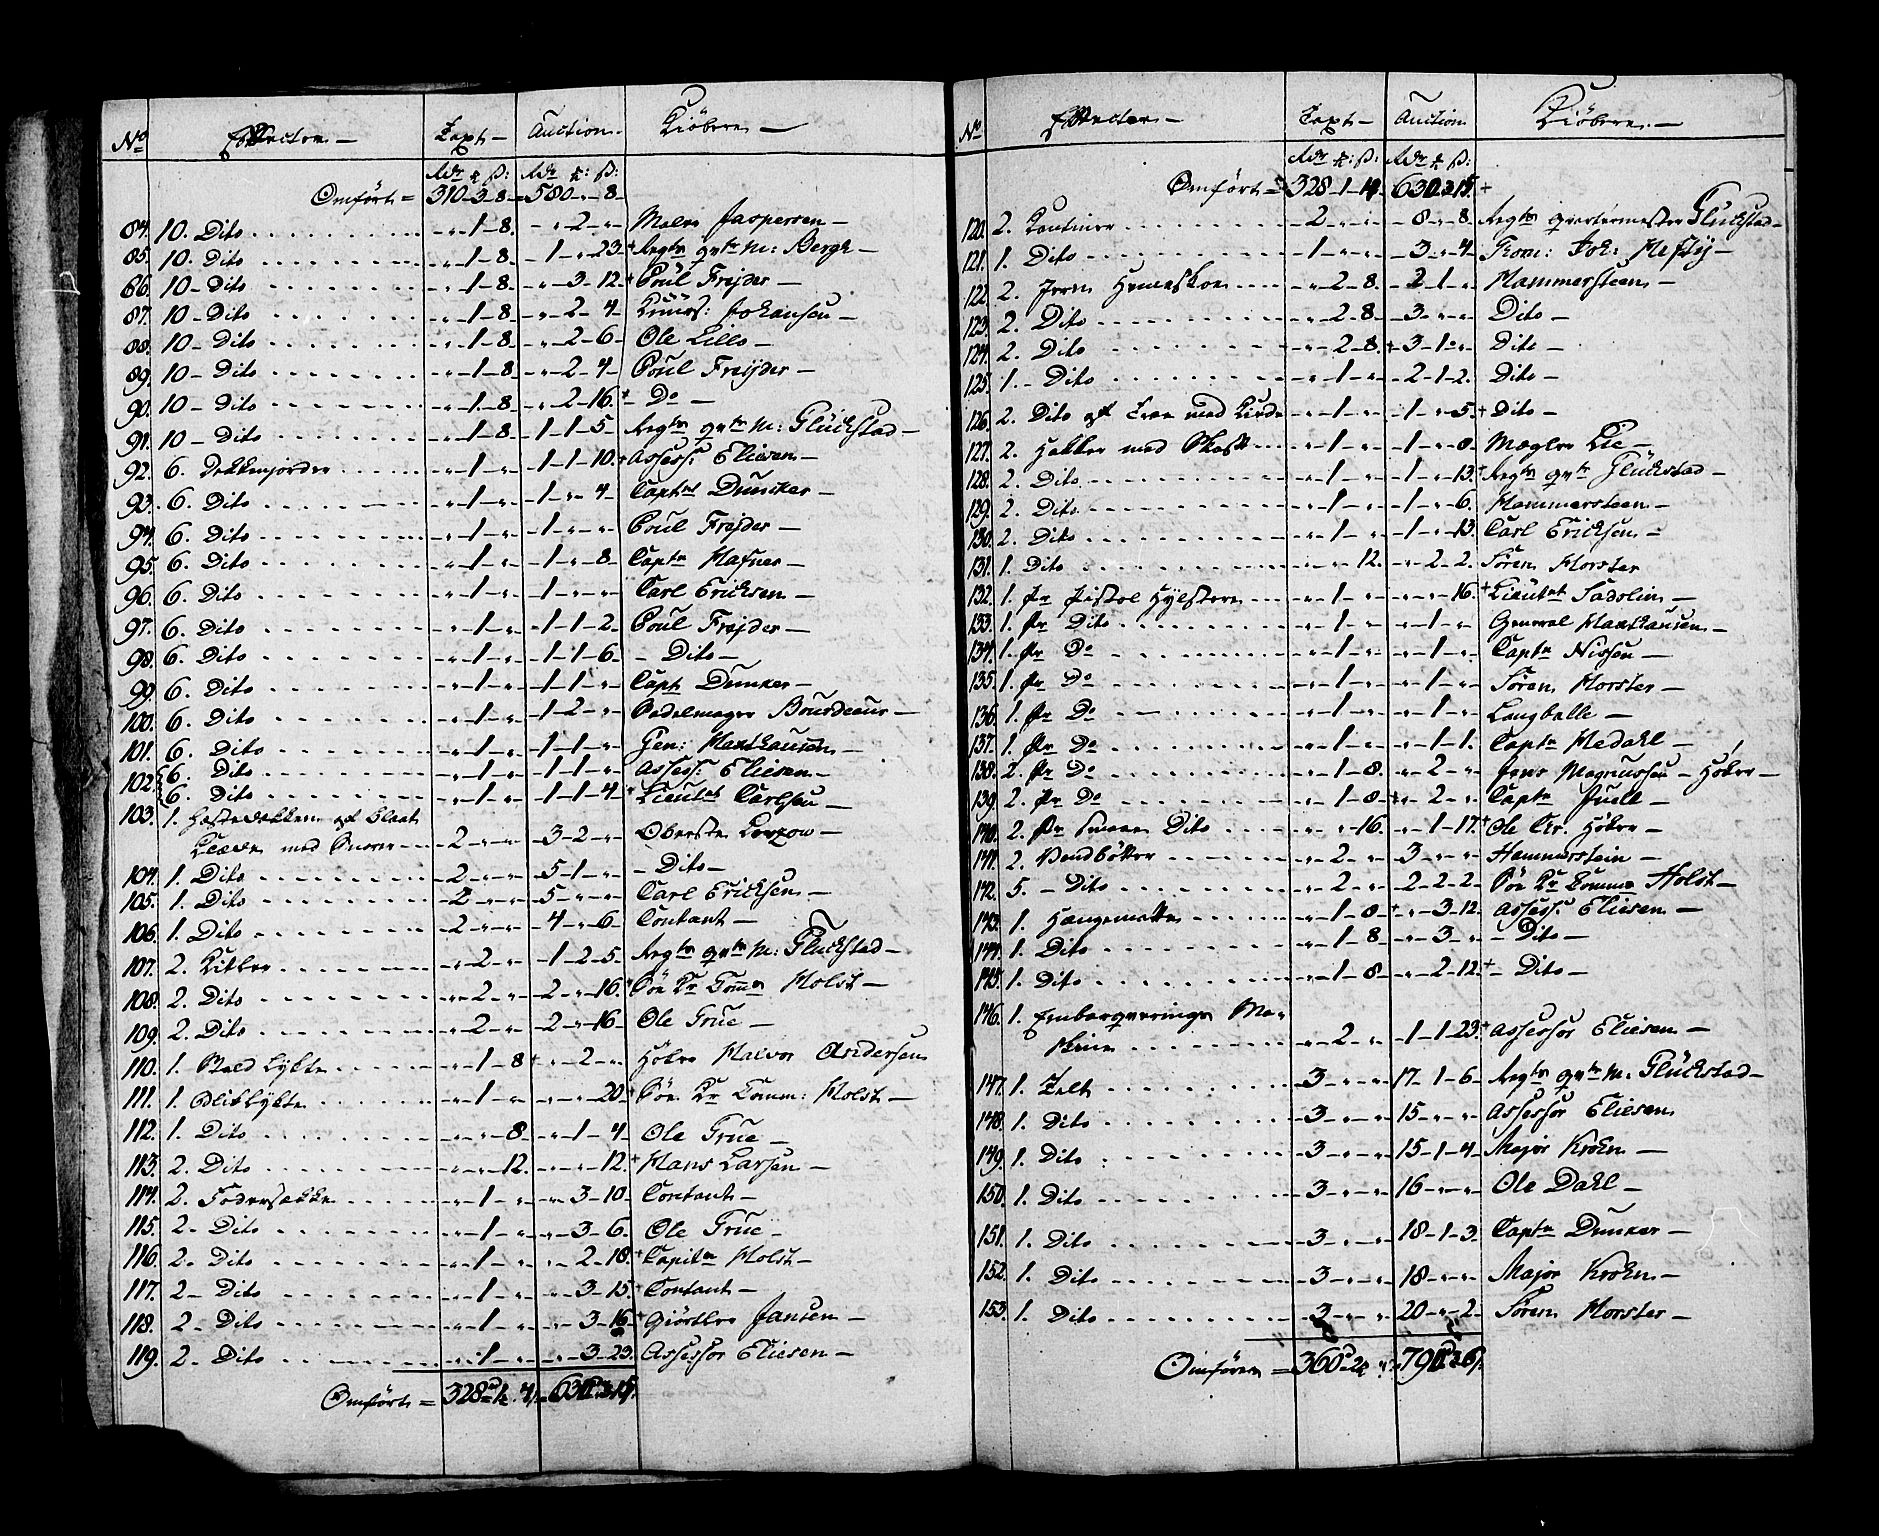 No Effecter — Taxt — Auction — Kiöbere —
Rdr ¤ ß: Rdr ¤: ß:
Omfört = 310-3-8 580-"-8-
84. 10. Dito "-1-8. "-2-" Maler Jaspersen —
85. 10. Dito "-1-8. -1-"-23+ Regts qvtr M: Bergh —
86. 10 - Dito "-1-8. "-3-12+ Poul Freyder —
87. 10 - Dito "-1-8 "-2-4 Johansen —
88. 10 - Dito "-1-8. "-2-6. Ole Lillo —
89. 10 - Dito "-1-8. "-2-4. Poul Freyder —
90. 10 - Dito "-1-8. "-2-16.+ — Do —
91. 10 - Dito "-1-8. -1-1-5. Regts qvtr M: Glückstad —
92. 6. Dekkenjorder "-1-" -1-1-10.+ Assess: Eliesen —
93. 6. Dito "-1-" -1-"-4 Captn Duncker —
94. 6. Dito "-1-" -1-"-" Poul Freyder —
95. 6. Dito "-1-" -1-"-8. Captn Hafner —
96. 6. Dito "-1-" -1-"-" Carl Ericksen —
97. 6. Dito "-1-" -1-1-2. Poul Freyder —
98. 6. Dito "-1-" -1-1-6. — Dito —
99. 6. Dito "-1-" -1-1-" Capt Dunker —
100. 6. Dito "-1-" -1-2-" Sadelmager Bourdeaux —
101. 6. Dito "-1-" -1-1-" Gen: Manthausen —
102. 6. Dito "-1-" -1-1-" Assess: Eliesen —
6. Dito "-1-" -1-1-4 Lieutnt Carlsen —
103. 1. Hestedækken af blaat
Klæde med Snorer 2-"-" 3-2-" Oberste Lerzow —
104. 1. Dito 2-"-" 5-1-" — Dito —
105. 1. Dito 2-"-" 5-"-" Carl Ericksen —
106. 1. Dito 2-"-" 4-"-6 Contant —
107. 2. Kitler "-2-" -1-2-5. Regts qvtr M: Glückstad —
108. 2. Dito "-2-" 2-"-16. Holst —
109. 2. Dito "-2-" 2-"-16 Ole True —
110. 1. Stald Lÿkte "-1-8+ "-2-" Höker Halvor Andersen
111. 1. Bliklÿkte "-1-" "-"-20. Holst —
112. 1. Dito "-"-8. "-1-4 Ole True —
113. 2. Dito "-"-12. "-"-12.+ Hans Larsen —
114. 2. Fodersække "-1-" "-3-10. Contant —
115. 2- Dito "-1-" "-3-6. Ole True —
116. 2- Dito "-1-" 2-18.+ Capitn Holst —
117. 2- Dito "-1-" "-3-15.+ Contant —
118. 2- Dito "-1-" "-3-16.+ Giörtler Jansen —
119. 2- Dito "-1-" "-3-23. Assessor Eliesen —
Omfört = 328-1-4.
No Effecter — Taxt — Auction Kiöbere —
Rdr ¤: ß: Rdr ¤ ß:
Omfört = 328-1-4.
120. 2. Kantiner 2-"-" 8-"-8. Regts qvartermester Glückstad —
121. 1. Dito 1-"-" 3-"-4. Joh: Mestÿ —
122 2. Jern Hæneskoe "-2-8. 2-1-" Hammersteen —
123. 2. Dito "-2-8. 3-"-" Dito —
124. 2. Dito "-2-8.+ 3-1-" Dito —
125. 1. - Dito "-1-" -2-1-2. Dito —
126. 2. Dito af Træe med "-1-" -1-"-5.+ Dito —
127. 2. Hakker med Skaft "-1-" -1-"-8. Mægler Lie —
128. 2. Dito "-1-" -1-"-13.+ Regts qvtr Glückstad —
129. 2. Dito "-1-" -1-"-6. Hammersteen —
130. 2. Dito "-1-" -1-"-13. Carl Ericksen —
131. 1. Dito "-"-12. "-2-2. Sören Horster
132. 1. Pr Pistol Hÿlstere "-1-" "-"-16.+ Lieutnt Sadolin —
133. 1. Pr Dito "-1-" "-1-" General Manthausen —
134. 1. Pr Do "-1-" "-1-" Captn Nissen —
135. 1. Pr Do "-1-" "-1-" Sören Horster —
136. 1. Pr Do "-1-" "-1-" Langballe —
137. 1. Pr Do "-1-" "-1-1. Captn Medahl —
138. 2. Pr Do "-1-8. "-2-" Jens Magnussen — Höker —
139. 2. Pr Do "-1-8. "-2-" Captn Juell —
140. 2. Pr smaae Dito "-"-16. "-1-17.+ Ole Chr. Höker —
141. 2. Vandbötter "-2-" 3-"-" Hammerstein —
142. 5. - Dito "-2-" 2-2-2. Holst —
143. 1. Hængematte "-1-8+ "-3-12. Assess: Eliesen —
144. 1. Dito "-1-8. "-3-" — Dito —
145. 1. Dito "-1-8. "-2-12.+ — Dito —
146. 1. Embarqverings Ma-
skine "-2-" -1-1-23.+ Assessor Eliesen —
147. 1. Telt 3-"-" 17-1-6. Regts qvtr M: Glückstad —
148. 1. Dito 3-"-" 15-"-" Assessor Eliesen
149. 1. Dito 3-"-" 15-1-4. Major Krohn —
150. 1. Dito 3-"-" 16-"-" Ole Dahl —
151. 1. Dito 3-"-" 18-1-3. Captn Dunker —
152. 1. Dito 3-"-" 18-"-" Major Krohn —
153. 1. Dito 3-"-" 20-"-2- Sören Horster —
Omföres = 360-2